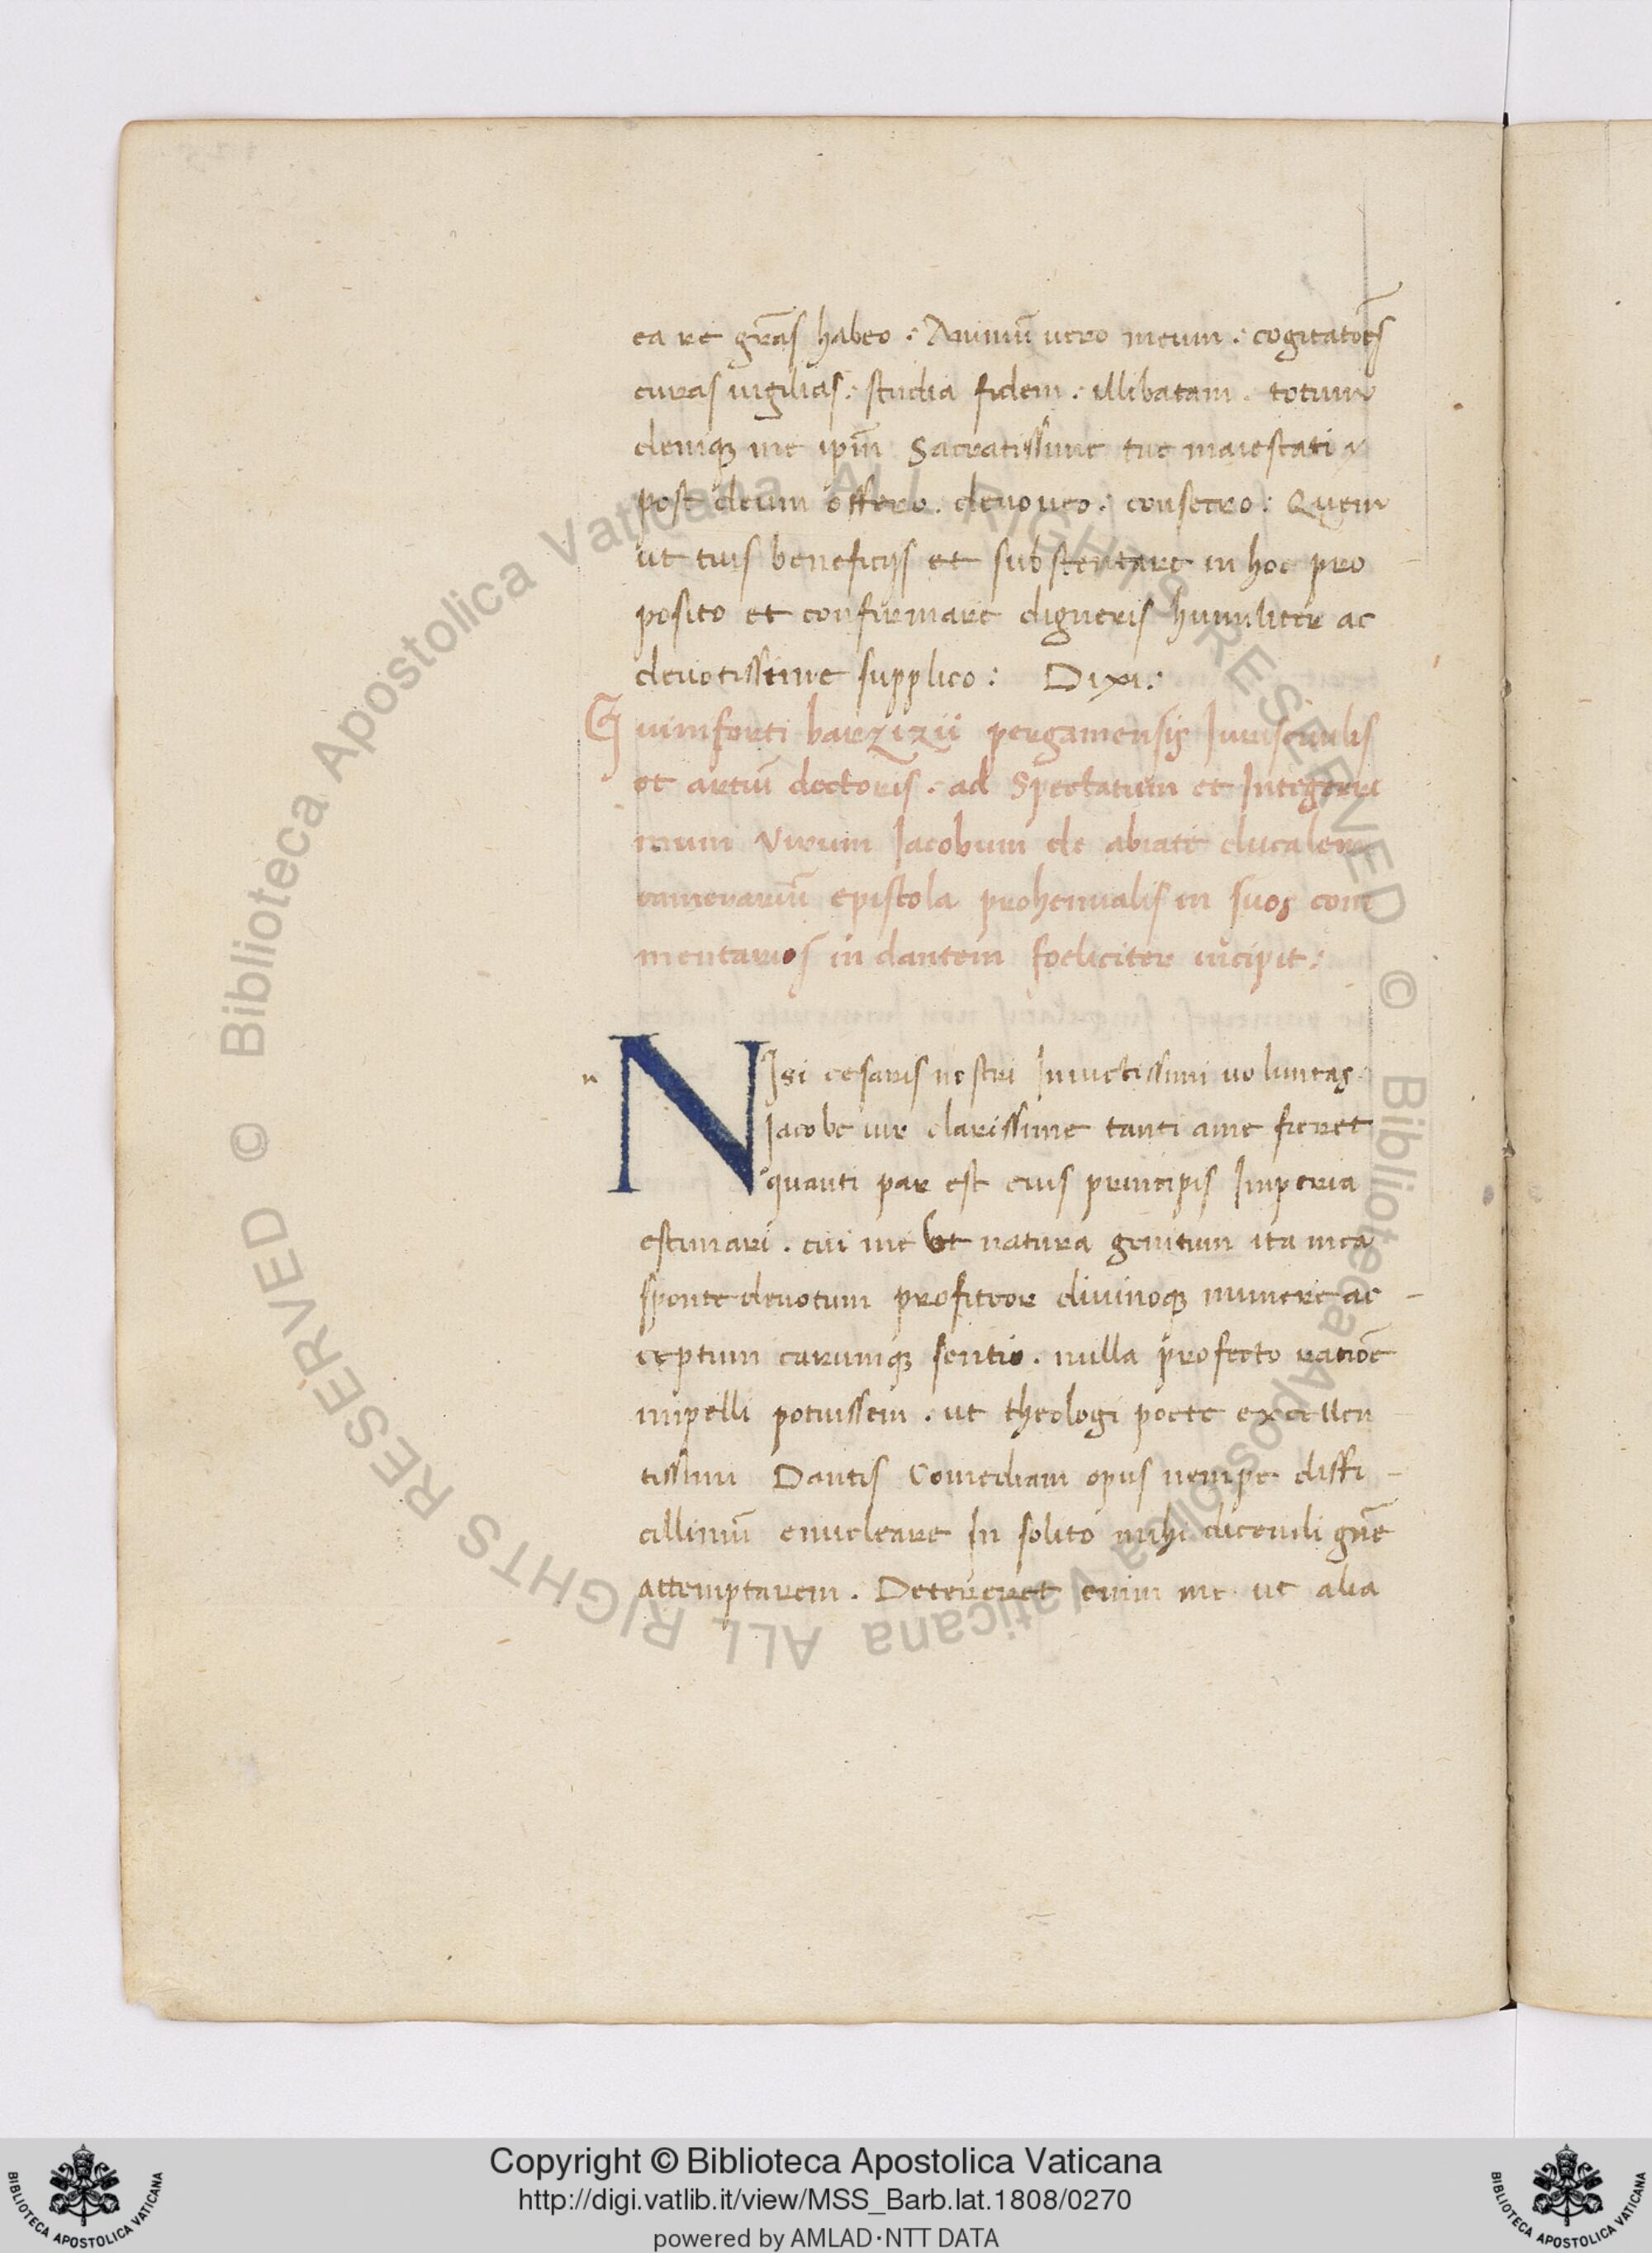 ea re grās habeo : Animū uero meum : cogitatōes
curas uigilias : studia fidem : illibatam . totum
deniqꝫ me ipm̄ Sacratissime tue maiestati
post deum offero . deuoueo : consecro : Quem
ut tuis beneficijs et substentare in hoc pro
posito et confirmare digneris humiliter ac
deuotissime supplico : Dixi :
Guiniforti barzizii pergamensis Iurisconsulis
et artiū doctoris . ad Spectatum et Integerri
mum Virum Iacobum de abiate ducalem
camerariū epistola prohemialis in suos com
mentarios in dantem foeliciter incipit :
n
NIsi cesaris nostri Inuictissimi uoluntas
Iacobe uir clarissime tanti ame fieret
quanti par est eius principis Imperia
estimari . cui me ut natura genitum ita mea
sponte deuotum profiteor diuinoqꝫ munere ac -
ceptum carumqꝫ sentio . nulla profecto ratiōe
impelli potuissem . ut theologi poete excellen
tissimi Dantis Comediam opus nempe diffi -
cillimū enucleare In solito mihi dicendi gn̄e
attemptarem . Detereret enim me ut alia
© Biblioteca Apostolica Vaticana ALL RIGHTS RESERVED © Biblioteca Apostolica Vaticana ALL RIGHTS RESERVED
Copyright © Biblioteca Apostolica Vaticana
http://digi.vatlib.it/view/MSS_Barb.lat.1808/0270
powered by AMLAD·NTT DATA
BIBLIOTECA APOSTOLICA VATICANA
BIBLIOTECA APOSTOLICA VATICANA